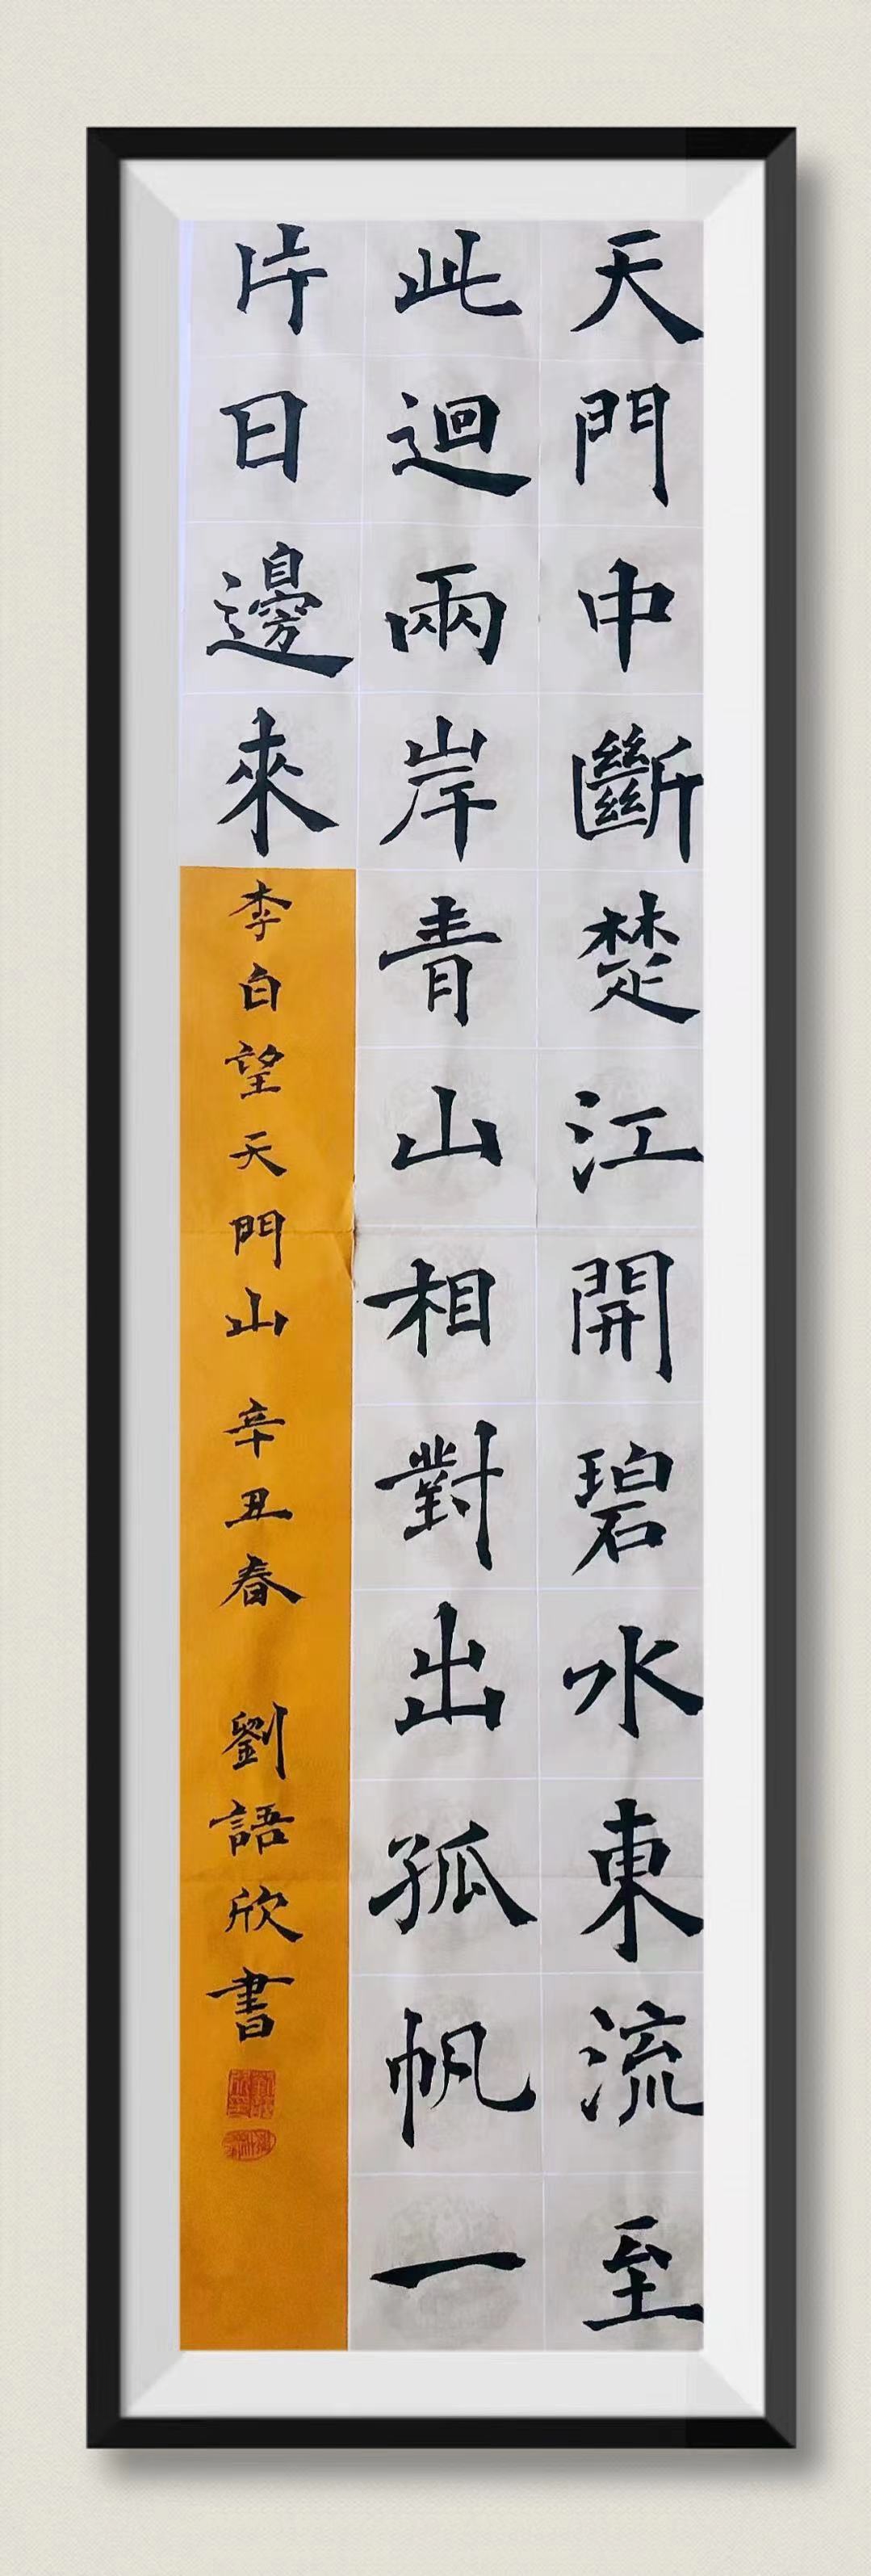 天門中斷楚江開碧水東流至
此迴兩岸青山相對出孤帆一
片日邊來
李白望天門山 辛丑春 劉語欣書